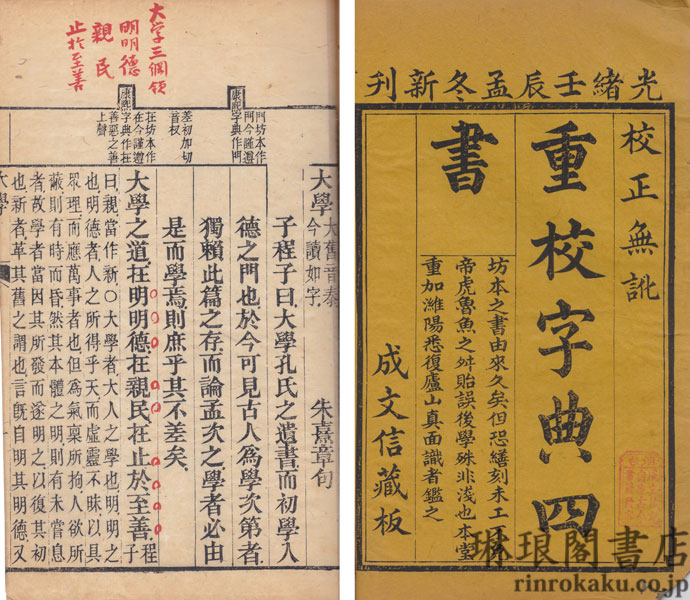 光緒壬辰孟冬新刊
校正無訛
重校字典四
書
坊本之書由來久矣但恐繕刻未工
帝虎魯魚之舛貽誤後學殊非淺也本堂
重加濰陽悉復廬山真面識者鑑之
成文信藏板
大学三個領
明明德
親民
止於至善
康熙
康熙
門坊本作
門今謹遵
字典作門
差初加切
音杈
在坊本作
在今謹遵
字典作在
善惡之善
上聲
大學
大舊音泰
今讀如字
朱熹章句
子程子曰大學孔氏之遺書而初學入
德之門也於今可見古人為學次第者
獨賴此篇之存而論孟次之學者必由
是而學焉則庶乎其不差矣
大學之道在明明德在親民在止於至善
程子
曰親當作新〇大學者大人之學也明明之
也明德者人之所得乎天而虛靈不昧以具
眾理而應萬事者也但為氣稟所拘人欲所
蔽則有時而昏然其本體之明則有未嘗息
者故學者當因其所發而遂明之以復其初
也新者革其舊之謂也言既自明其明德又
大學
琳琅閣書店
rinrokaku.co.jp